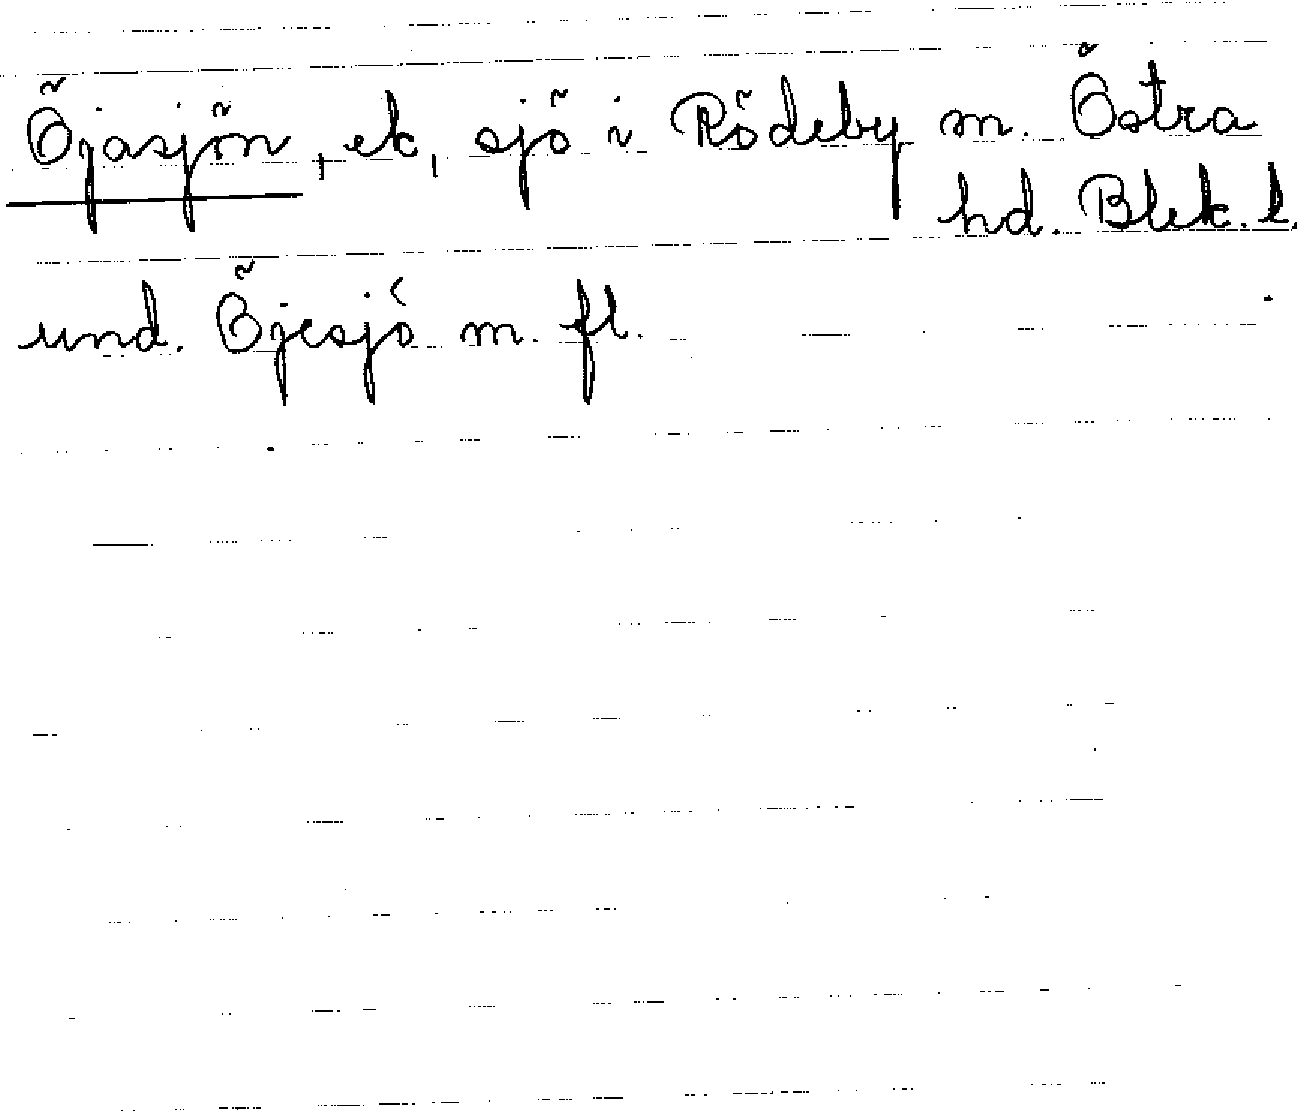 Öjasjön, ek, sjö i Rödeby m. Östra
hd. Blek. l.
und. Öjesjö m. fl.